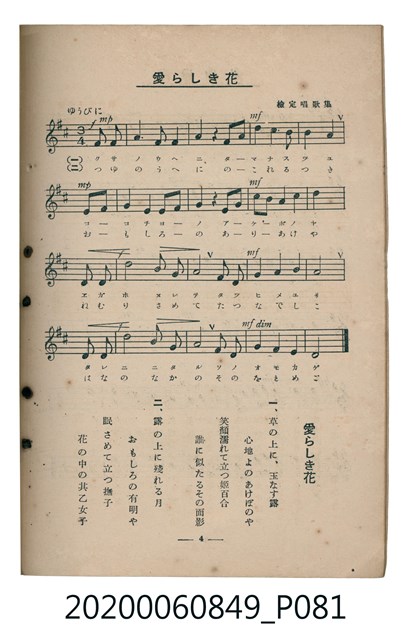 愛らしき花
檢定唱歌集
ゆうびに
mp
mf
V
クサノウヘニ、タマナスツユ
つゆのうへにのこれるつき
mp
mf
ココチヨノアケボノヤ
おもしろのありあけや
V
mf
V
ヱガホヌレテタツヒメユリ
ねむりさめてたつなでしこ
V
mf dim
タレニニタルソノオモカゲ
はなのなかのそのをとめご
愛らしき花
一、草の上に、玉なす露
心地よのあけぼのや
笑顏濡れて立つ姬百合
誰に似たるその面影
二、露の上に殘れる月
おもしろの有明や
眠さめて立つ撫子
花の中の其乙女子
— 4 —
20200060849_P081